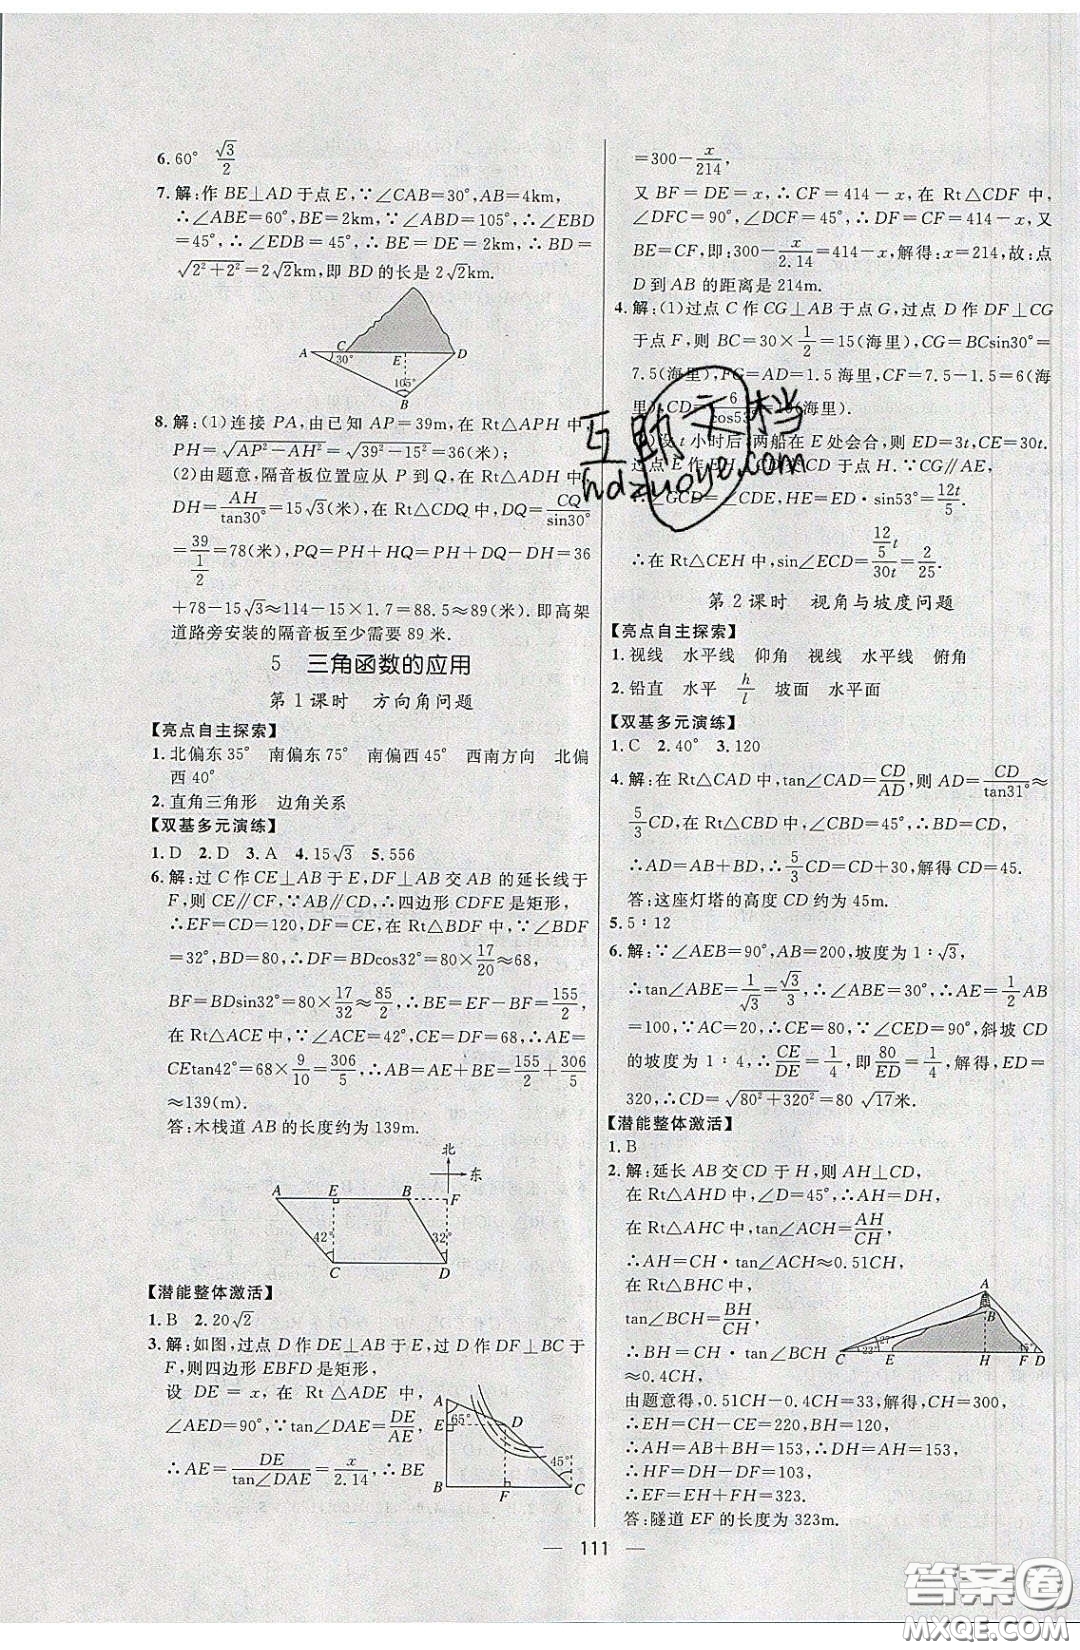 6. 60° √3/2
7. 解:作 BE⊥AD 于点 E,∵∠CAB=30°,AB=4km,
∴∠ABE=60°,BE=2km,∵∠ABD=105°,∴∠EBD
=45°,∴∠EDB=45°,∴BE=DE=2km,∴BD=
√(2²+2²)=2√2km,即 BD 的长是 2√2km.
A C 30° E D 105° B
8. 解:(1)连接 PA,由已知 AP=39m,在 Rt△APH 中,
PH=√(AP²-AH²)=√(39²-15²)=36(米);
(2)由题意,隔音板位置应从 P 到 Q,在 Rt△ADH 中,
DH=AH/tan30°=15√3(米),在 Rt△CDQ 中,DQ=CQ/sin30°
=39/(1/2)=78(米),PQ=PH+HQ=PH+DQ-DH=36
+78-15√3≈114-15×1.7=88.5≈89(米).即高架
道路旁安装的隔音板至少需要 89 米.
5 三角函数的应用
第1课时 方向角问题
【亮点自主探索】
1. 北偏东35° 南偏东75° 南偏西45° 西南方向 北偏
西40°
2. 直角三角形 边角关系
【双基多元演练】
1. D 2. D 3. A 4. 15√3 5. 556
6. 解:过 C 作 CE⊥AB 于 E,DF⊥AB 交 AB 的延长线于
F,则 CE∥CF,∵AB∥CD,∴四边形 CDFE 是矩形,
∴EF=CD=120,DF=CE,在 Rt△BDF 中,∵∠BDF
=32°,BD=80,∴DF=BDcos32°=80×17/20≈68,
BF=BDsin32°=80×17/32≈85/2,∴BE=EF-BF=155/2,
在 Rt△ACE 中,∵∠ACE=42°,CE=DF=68,∴AE=
CEtan42°=68×9/10=306/5,∴AB=AE+BE=155/2+306/5
≈139(m).
答:木栈道 AB 的长度约为 139m.
北
东
A E B F 42° 32° C D
【潜能整体激活】
1. B 2. 20√2
3. 解:如图,过点 D 作 DE⊥AB 于 E,过 D 作 DF⊥BC 于
F,则四边形 EBFD 是矩形,
设 DE=x,在 Rt△ADE 中,
∠AED=90°,∵tan∠DAE=DE/AE,
∴AE=DE/tan∠DAE=x/2.14,∴BE
A 65° E D 45° B F C
=300-x/214,
又 BF=DE=x,∴CF=414-x,在 Rt△CDF 中,
∠DFC=90°,∠DCF=45°,∴DF=CF=414-x,又
BE=CF,即:300-x/2.14=414-x,解得:x=214,故:点
D 到 AB 的距离是 214m.
4. 解:(1)过点 C 作 CG⊥AB 于点 G,过点 D 作 DF⊥CG
于点 F,则 BC=30×1/2=15(海里),CG=BCsin30°=
7.5(海里),FG=AD=1.5 海里,CF=7.5-1.5=6(海
里),CD=6/cos53°=10(海里).
设 t 小时后,两船在 E 处会合,则 ED=3t,CE=30t.
过点 E 作 EH⊥CD 于点 H.∵CG∥AE,
∴∠GCD=∠CDE,HE=ED·sin53°=12t/5.
∴在 Rt△CEH 中,sin∠ECD=(12/5)t/30t=2/25.
第2课时 视角与坡度问题
【亮点自主探索】
1. 视线 水平线 仰角 视线 水平线 俯角
2. 铅直 水平 h/l 坡面 水平面
【双基多元演练】
1. C 2. 40° 3. 120
4. 解:在 Rt△CAD 中,tan∠CAD=CD/AD,则 AD=CD/tan31°≈
5/3CD,在 Rt△CBD 中,∠CBD=45°,∴BD=CD,
∴AD=AB+BD,∴5/3CD=CD+30,解得 CD=45.
答:这座灯塔的高度 CD 约为 45m.
5. 5∶12
6. 解:∵∠AEB=90°,AB=200,坡度为 1∶√3,
∴tan∠ABE=1/√3=√3/3,∴∠ABE=30°,∴AE=1/2AB
=100,∵AC=20,∴CE=80,∵∠CED=90°,斜坡 CD
的坡度为 1∶4,∴CE/DE=1/4,即 80/ED=1/4,解得,ED=
320,∴CD=√(80²+320²)=80√17米.
【潜能整体激活】
1. B
2. 解:延长 AB 交 CD 于 H,则 AH⊥CD,
在 Rt△AHD 中,∠D=45°,∴AH=DH,
在 Rt△AHC 中,tan∠ACH=AH/CH,
∴AH=CH·tan∠ACH≈0.51CH,
在 Rt△BHC 中,
tan∠BCH=BH/CH,
∴BH=CH·tan∠BCH
≈0.4CH,
A B 27° 22° 45° C E H F D
由题意得,0.51CH-0.4CH=33,解得,CH=300,
∴EH=CH-CE=220,BH=120,
∴AH=AB+BH=153,∴DH=AH=153,
∴HF=DH-DF=103,
∴EF=EH+FH=323.
答:隧道 EF 的长度为 323m.
111
互助文档
hdzuoye.com
答案圈
MXQE.COM